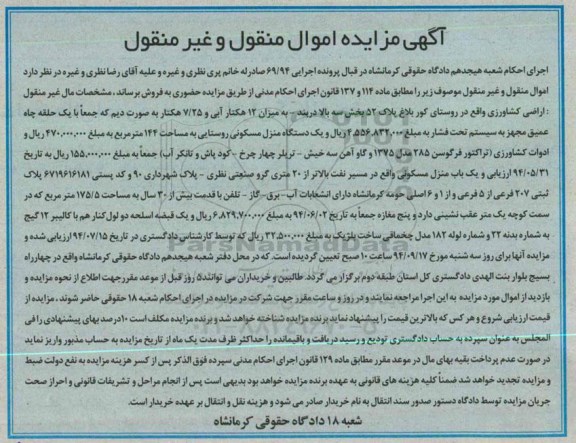 آگهی مزایده اموال منقول و غیر منقول
اجرای احکام شعبه هیجدهم دادگاه حقوقی کرمانشاه در قبال پرونده اجرایی ۶۹/۹۴ صادرله خانم پری نظری و غیره و علیه آقای رضا نظری و غیره در نظر دارد
اموال منقول و غیر منقول موصوف زیر را مطابق ماده ۱۱۴ و ۱۳۷ قانون اجرای احکام مدنی از طریق مزایده حضوری به فروش برساند ، مشخصات مال غیر منقول
: اراضی کشاورزی واقع در روستای کور بلاغ پلاک ۵۲ بخش سه بالا دربند به میزان ۱۲ هکتار آبی و ۷/۲۵ هکتار به صورت دیم که جمعاً با یک حلقه چاه
عمیق مجهز به سیستم تحت فشار به مبلغ ۴,۵۵۶,۸۳۲,۰۰۰ ریال و یک دستگاه منزل مسکونی روستایی به مساحت ۱۴۴ مترمربع به مبلغ ۴۷۰,۰۰۰,۰۰۰ ریال و
ادوات کشاورزی (تراکتور فرگوسن ۲۸۵ مدل ۱۳۷۵ و گاو آهن سه خیش - تریلر چهار چرخ - کود پاش و تانکر آب) جمعاً به مبلغ ۱۵۵,۰۰۰,۰۰۰ ریال به تاریخ
۹۴/۰۵/۳۱ ارزیابی و یک باب منزل مسکونی واقع در مسیر نفت بالاتر از ۲۰ متری گرو صنعتی نظری - پلاک شهرداری ۹۰ و کد پستی ۶۷۱۹۶۱۶۱۸۱ پلاک
ثبتی ۲۰۷ فرعی از ۵ فرعی و از ۱ و ۶ اصلی حومه کرمانشاه دارای انشعابات آب - برق - گاز - تلفن با قدمت بیش از ۳۰ سال به مساحت ۱۷۵/۵ متر مربع که در
سمت کوچه یک متر عقب نشینی دارد و پنج مغازه جمعاً به تاریخ ۹۴/۰۶/۰۲ به مبلغ ۶,۸۲۹,۷۰۰,۰۰۰ ریال و یک قبضه اسلحه دو لول کنار هم با کالیبر ۱۲ گیج
به شماره بدنه ۲۲ و شماره لوله ۱۸۲ مدل چخماقی ساخت بلژیک به مبلغ ۳۲,۵۰۰,۰۰۰ ریال که توسط کارشناس دادگستری در تاریخ ۹۴/۰۷/۱۵ ارزیابی شده و
مزایده آنها برای روز سه شنبه مورخ ۹۴/۰۹/۱۷ ساعت ۱۰ صبح تعیین گردیده است. که در محل دفتر شعبه هیجدهم دادگاه حقوقی کرمانشاه واقع در چهارراه
بسیج بلوار بنت الهدی دادگستری کل استان طبقه دوم برگزار می گردد. طالبین و خریداران می توانند ۵ روز قبل از موعد مقرر جهت اطلاع از نحوه مزایده و
بازدید از اموال مورد مزایده به این اجرا مراجعه نمایند و در روز و ساعت مقرر جهت شرکت در مزایده در اجرای احکام شعبه ۱۸ حقوقی حاضر شوند . مزایده از
قیمت ارزیابی شروع و هر کس که بالاترین قیمت را پیشنهاد نماید برنده مزایده شناخته خواهد شد و برنده مزایده مکلف است ۱۰ درصد بهای پیشنهادی را فی
المجلس به عنوان سپرده به حساب دادگستری تودیع و رسید دریافت و باقیمانده را حداکثر ظرف مدت یک ماه از تاریخ مزایده به حساب مذبور واریز نماید
در صورت عدم پرداخت بقیه بهای مال در موعد مقرر مطابق ماده ۱۲۹ قانون اجرای احکام مدنی سپرده فوق الذکر پس از کسر هزینه مزایده به نفع دولت ضبط
و مزایده تجدید خواهد شد ضمناً کلیه هزینه های قانونی به عهده برنده مزایده خواهد بود بدیهی است پس از انجام مراحل و تشریفات قانونی و احراز صحت
جریان مزایده توسط دادگاه دستور صدور سند انتقال به نام خریدار صادر می شود و هزینه نقل و انتقال بر عهده خریدار است.
شعبه ۱۸ دادگاه حقوقی کرمانشاه
ParsNamadData